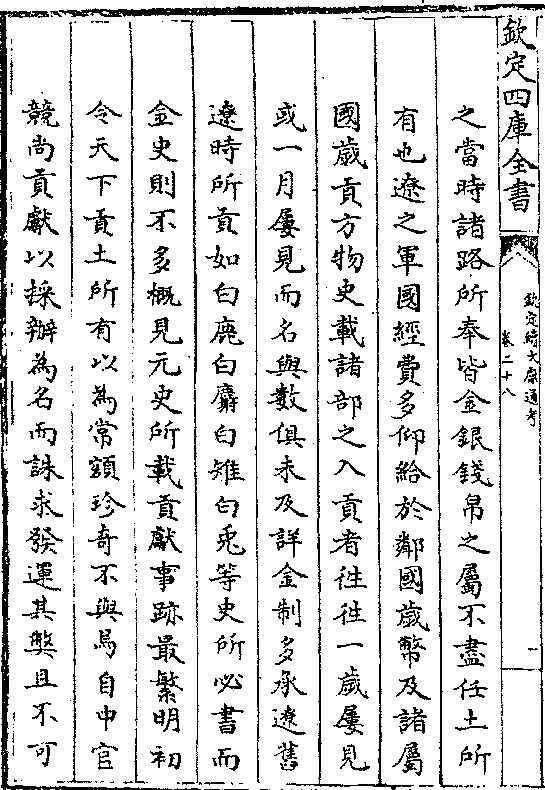 欽定四庫全書
欽定續文獻通考
卷二十八
一
之當時諸路所奉皆金銀錢帛之屬不盡任土所
有也遼之軍國經費多仰給於鄰國歲幣及諸屬
國歲貢方物史載諸部之入貢者徃徃一歲屢見
或一月屢見而名與數俱未及詳金制多承遼舊
遼時所貢如白鹿白麝白雉白兎等史所必書而
金史則不多概見元史所載貢獻事跡最繁明初
令天下貢土所有以為常額珍奇不與焉自中官
競尚貢獻以採辦為名而誅求發運其獘且不可